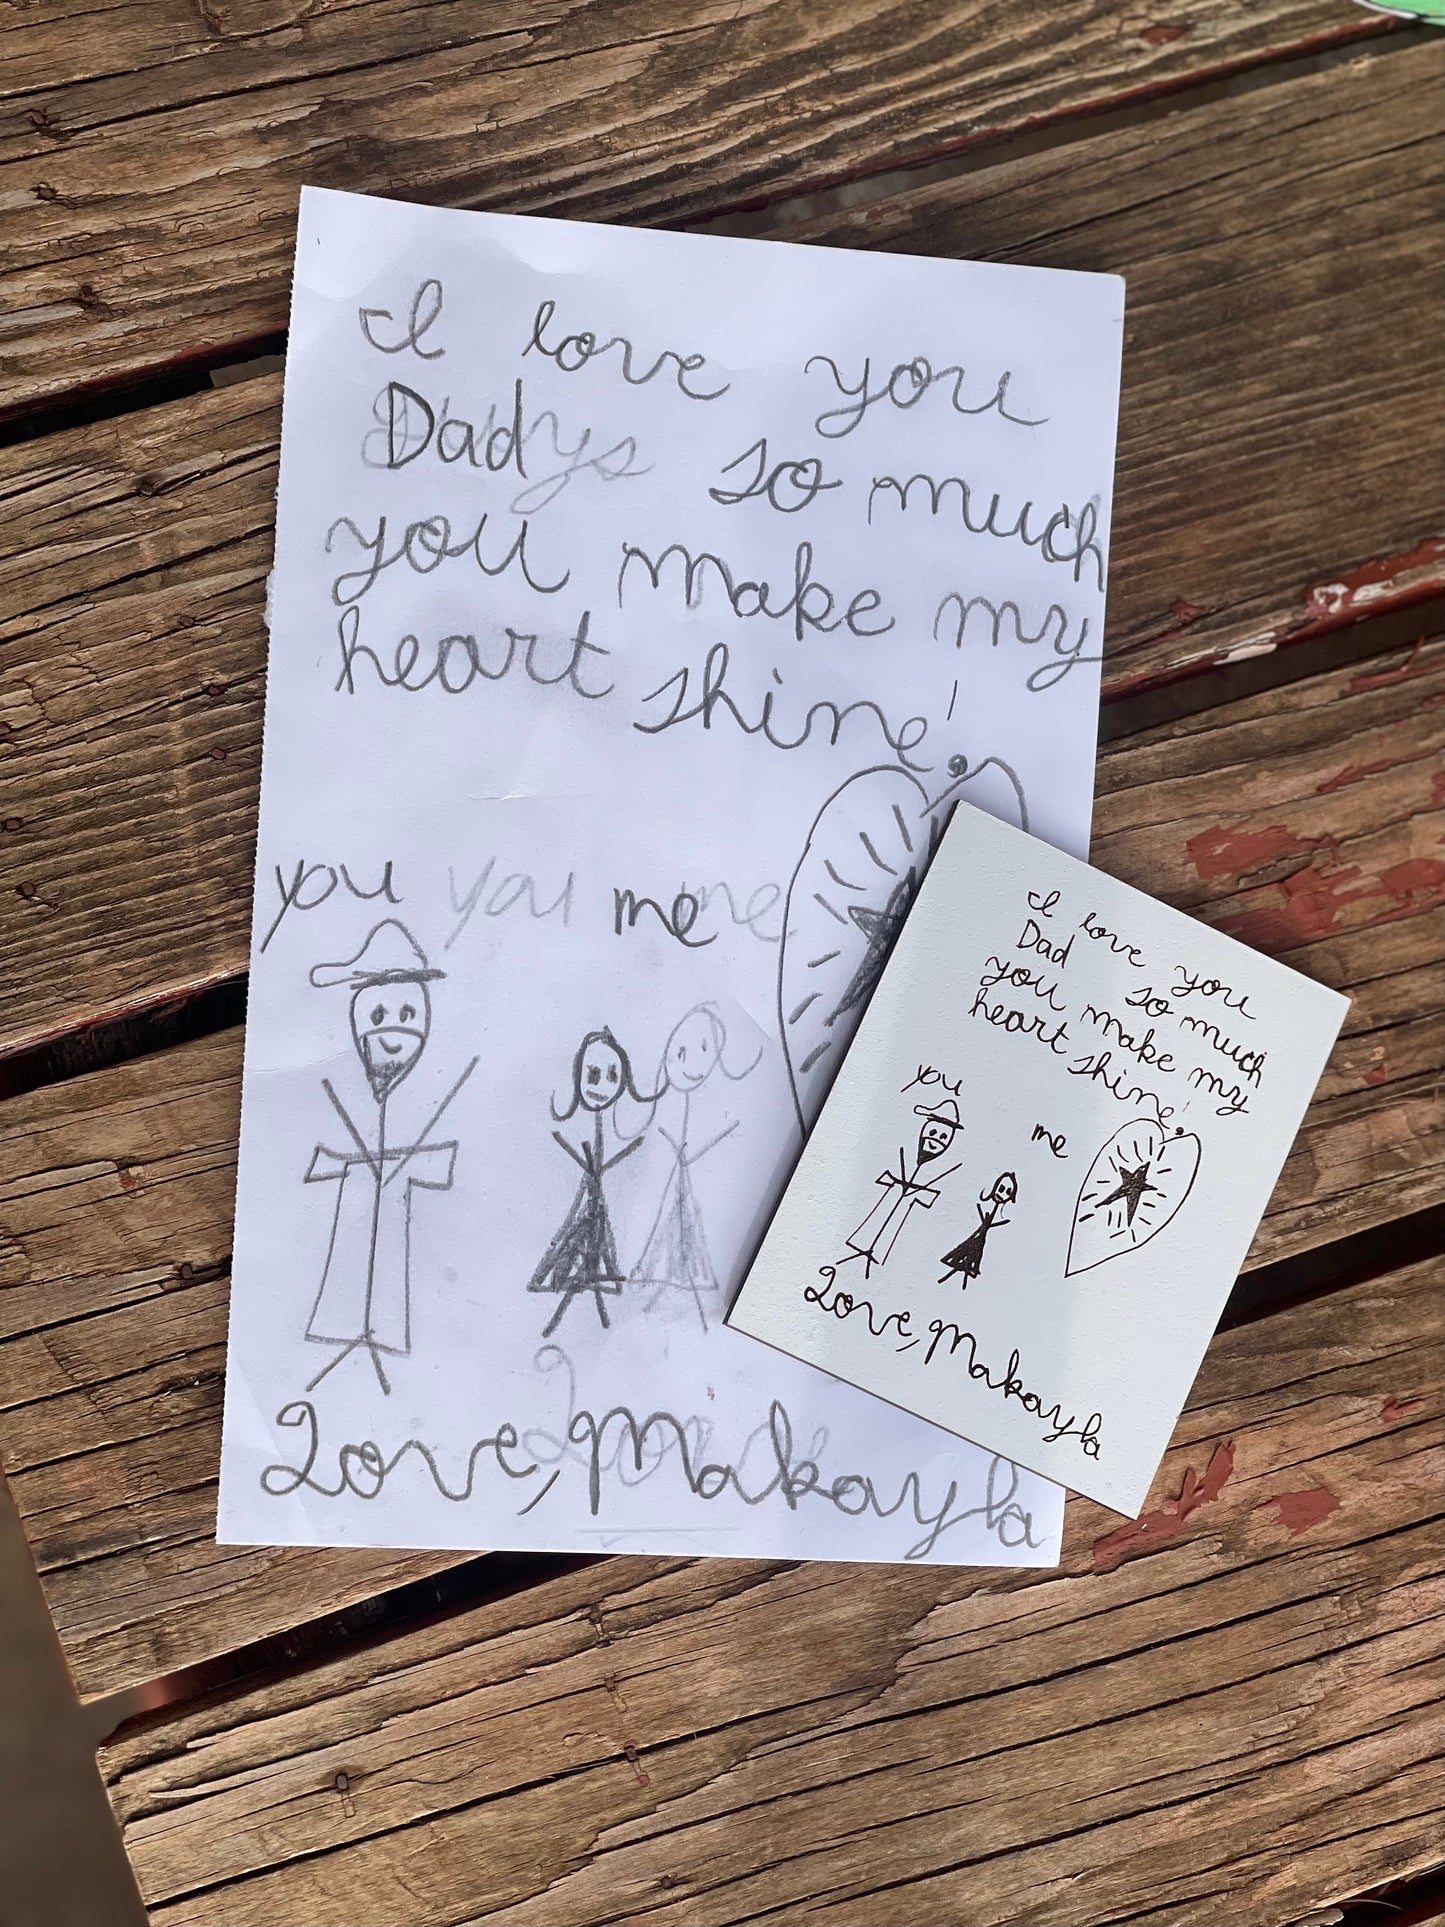 I love you
Dad so much
you make my
heart shine!
you you me me
Love, Makayla
I love you
Dad so much
you make my
heart shine!
you
me
Love, Makayla